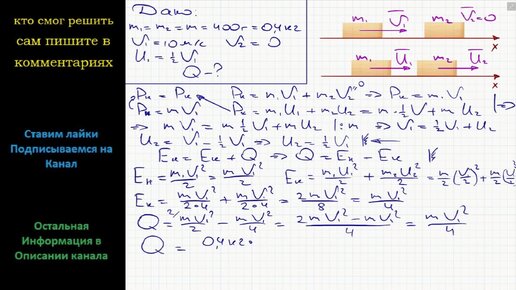 кто смог решить
сам пишите в
комментариях
Ставим лайки
Подписываемся на
Канал
Остальная
Информация в
Описании канала
Дано:
m₁ = m₂ = m = 400 г = 0,4 кг
V₁ = 10 м/с V₂ = 0
U₁ = ½ V₁
Q - ?
m₁ V₁ m₂ V₂ = 0
x
m₁ U₁ m₂ U₂
x
Pн = Pк Pн = m₁V₁ + m₂V₂⁰ => Pн = m₁V₁
Pн = mV₁ Pк = m₁U₁ + m₂U₂ = m·½V₁ + mU₂ =>
=> mV₁ = m ½V₁ + mU₂ |:m => V₁ = ½V₁ + U₂
U₂ = V₁ - ½V₁ => U₂ = ½V₁
Eн = Eк + Q => Q = Eн - Eк
Eн = m₁V₁²/2 = mV₁²/2 Eк = m₁U₁²/2 + m₂U₂²/2 = m/2 (V₁/2)² + m/2 (V₁
Eк = mV₁²/2·4 + mV₁²/2·4 = 2mV₁²/8 = mV₁²/4
Q = ²⁄mV₁²/2 - mV₁²/4 = 2mV₁² - mV₁²/4 = mV₁²/4
Q = 0,4 кг·